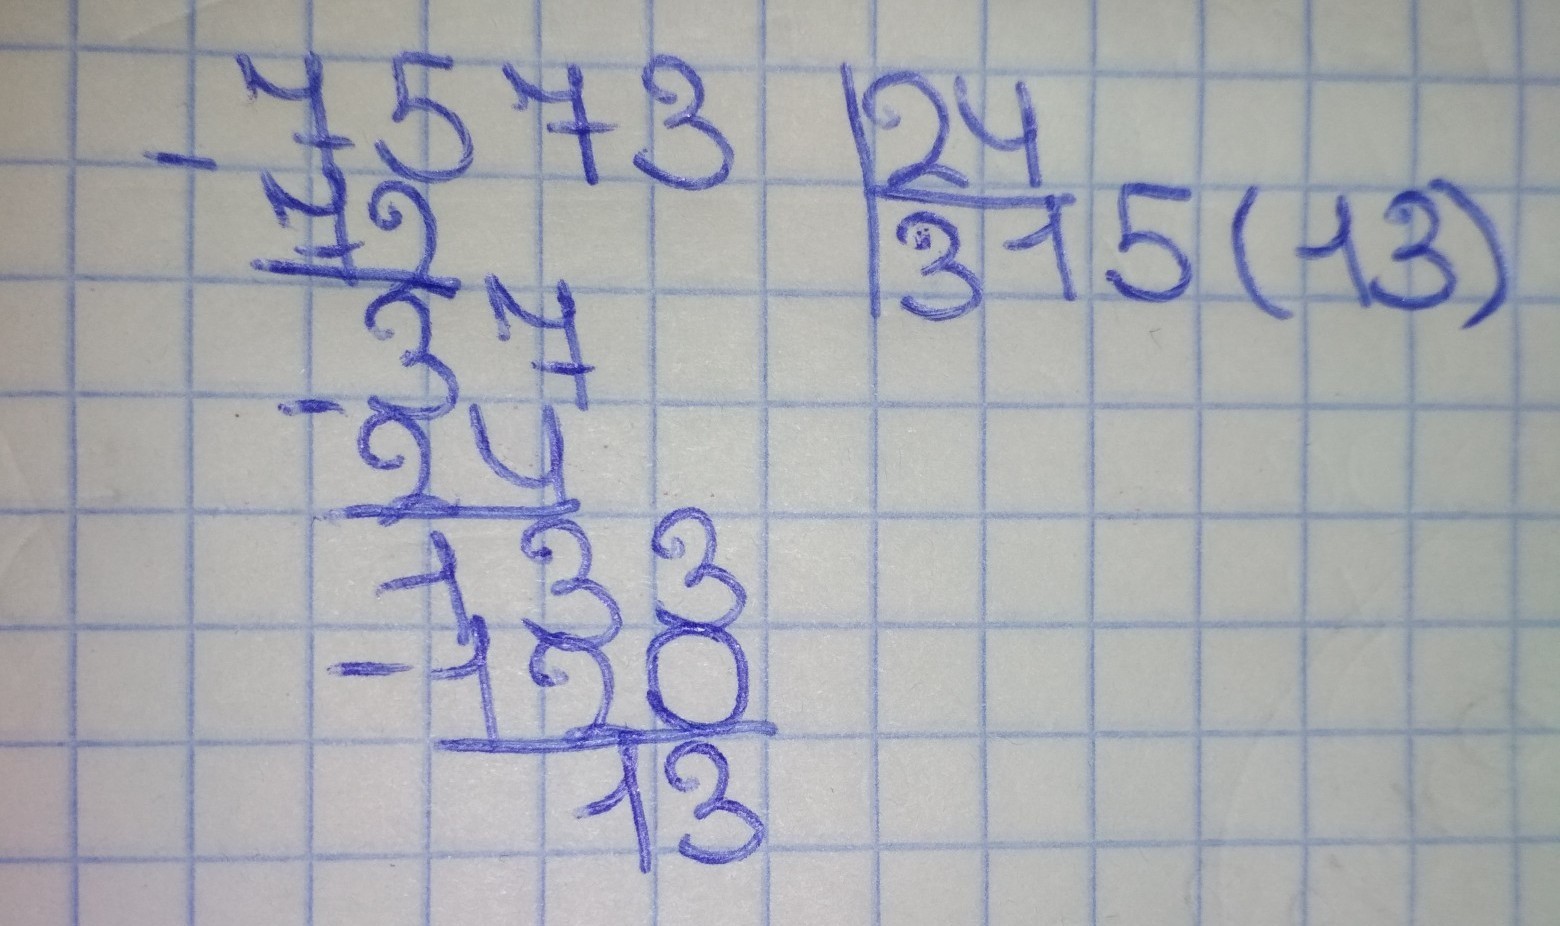 7573 24
- 72 315(13)
37
- 24
133
- 120
13